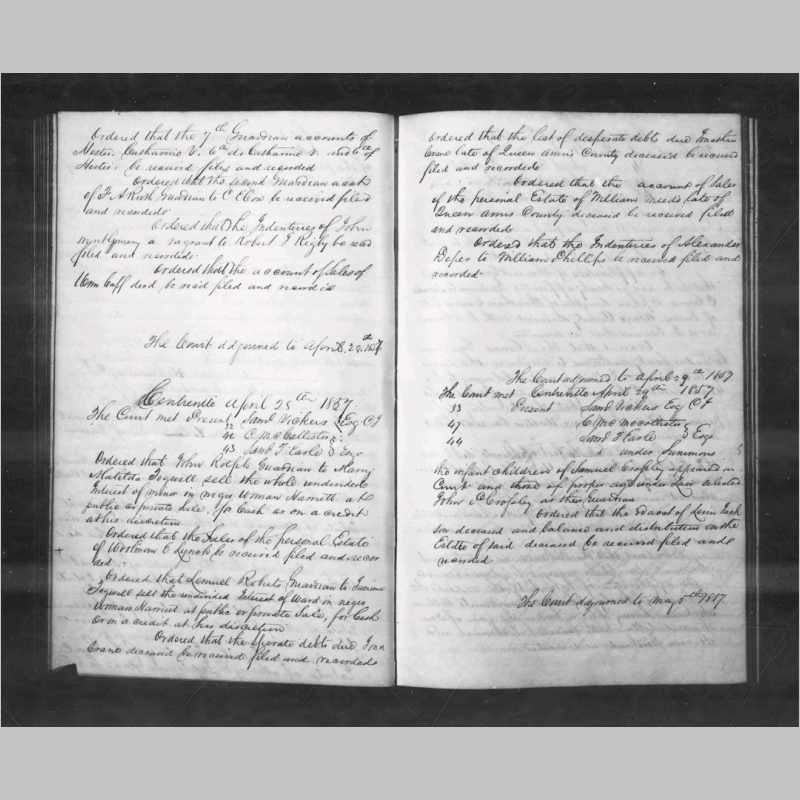 Ordered that the 7th Guardian accounts of
Hester. Catharine V. 6th do Catharine V. and 6th of
Hester be received filed and recorded
Ordered that the second Guardian acct
of F A Rush Guardian to C C Cox be received filed
and recorded
Ordered that the Indentures of John
Montgomery a vagrant to Robert T Rigby be recd
filed and recorded
Ordered that the account of Sales of
Wm Cuff decd be recd filed and recorded
The Court adjourned to April 28th 1857
Centreville April 28th 1857
The Court met Present Saml Vickers Esq C J
32
42 C McCollister
43 Saml T Earle Esqr
Ordered that John Rolph Guardian to Mary
Matilda sell the whole undivided
Interest of minor in negro Woman Harriett at
public or private sale, for Cash or on a credit
at his discretion
Ordered that the Sales of the personal Estate
of Woolman C Lynch be received filed and recor
ded
Ordered that Lemuel Roberts Guardian to
sell the undivided Interest of Ward in negro
Woman Harriet at public or private Sale, for Cash
or on a credit at his discretion
Ordered that the sperate debts due
Crane deceased be received filed and recorded
Ordered that the list of desperate debts due
Crane late of Queen Anns County deceased be received
filed and recorded
Ordered that the account of Sales
of the personal Estate of William Meeds late of
Queen Anns County deceased be received filed
and recorded
Ordered that the Indentures of Alexander
to William Phillips be received filed and
recorded
The Court adjourned to April 29th 1857
The Court met Centreville April 29th 1857
33 Present Saml Vickers Esq C J
47 C McCollister
44 Saml T Earle Esqr
under Summons
the infant children of Samuel appeared in
Court and those of proper age under Law selected
John as their Guardian
Ordered that the of Levin Jack
son deceased and balance and distribution on the
Estate of said deceased be received filed and
recorded
The Court adjourned to May 5th 1857